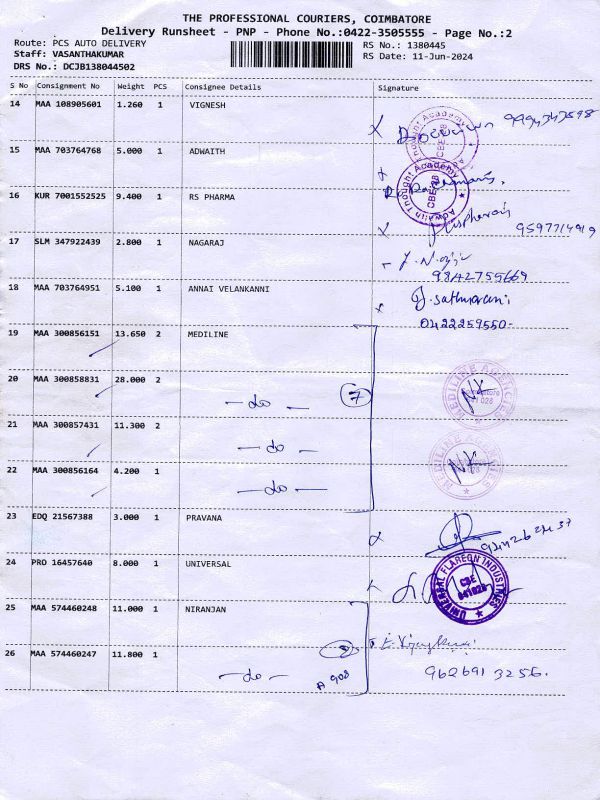 THE PROFESSIONAL COURIERS, COIMBATORE
Delivery Runsheet - PNP - Phone No.:0422-3505555 - Page No.:2
Route: PCS AUTO DELIVERY RS No.: 1380445
Staff: VASANTHAKUMAR RS Date: 11-Jun-2024
DRS No.: DCJB138044502
S No Consignment No Weight PCS Consignee Details Signature
14 MAA 108905601 1.260 1 VIGNESH
15 MAA 703764768 5.000 1 ADWAITH
Adwaith Thought Academy
CBE-28
16 KUR 7001552525 9.400 1 RS PHARMA
17 SLM 347922439 2.800 1 NAGARAJ
9842755669
18 MAA 703764951 5.100 1 ANNAI VELANKANNI
0422259550
19 MAA 300856151 13.650 2 MEDILINE
20 MAA 300858831 28.000 2 - do - 7
MEDILINE AGENCIES
21 MAA 300857431 11.300 2 - do -
22 MAA 300856164 4.200 1 - do -
23 EDQ 21567388 3.000 1 PRAVANA
24 PRD 16457640 8.000 1 UNIVERSAL
UNIVERSAL FLAREON INDUSTRIES
CBE
641028
25 MAA 574460248 11.000 1 NIRANJAN
26 MAA 574460247 11.800 1 - do - A 908
962691 3256.